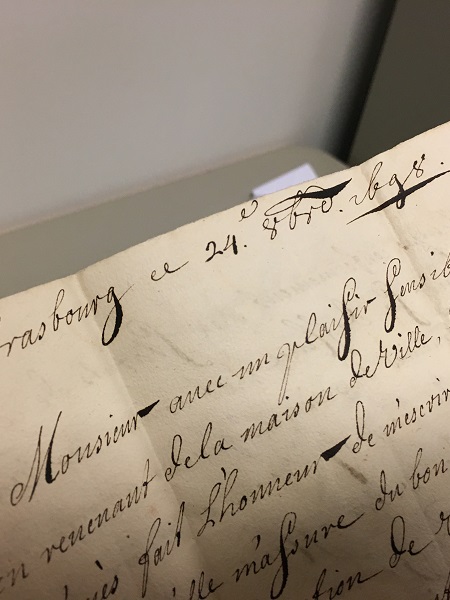 rasbourg ce 24.e 8bre. 1698.
Monsieur avec un plaisir sensib
en revenant dela maison de Ville,
fait L'honneur de m'escrir
m'assure du bon
tion de